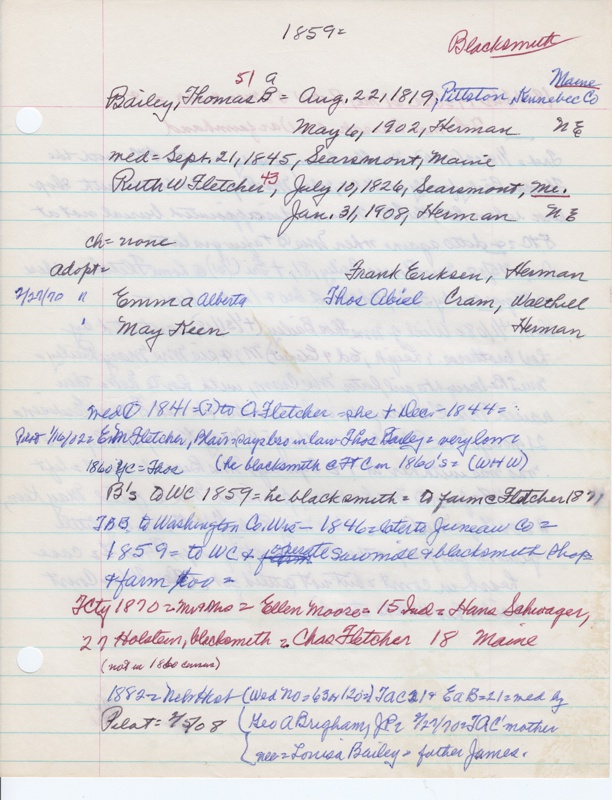 1859=
Blacksmith
51 a Maine
Bailey, Thomas B = Aug. 22, 1819, Pittston, Kennebec Co
May 6, 1902, Herman N E
med = Sept. 21, 1845, Searsmont, Maine
Ruth W Fletcher 43, July 10, 1826, Searsmont, Me.
Jan. 31, 1908, Herman N E
ch = none
adopt = Frank Eriksen, Herman
2/27/70 " Emma Alberta Thos Abiel Cram, Walthill
" May Keen Herman
med 1841 = (?) to O. Fletcher = she + Dec. - 1844 =
1/16/02 = E.M. Fletcher, Blair = says bro in law Thos Bailey = very low
1860 YC = Thos (he blacksmith @ Ft C in 1860's = (WHW)
B's to WC 1859 = he blacksmith = to farm @ Fletcher 187
TBB to Washington Co. Wis - 1846 = later to Juneau Co =
1859 = to WC & operate sawmill & blacksmith shop
& farm too =
Fcty 1870 = = Ellen Moore = 15 Ind = Hans Schwager,
27 Holstein, blacksmith = Chas Fletcher 18 Maine
(not in 1860 census)
1882 = Neb Hist (Wed No = 63 or 120 =) TAC 21 & EaB = 21 = med by
Pilot = 2/5/08 (Geo A Brigham, JP = 2/27/70 = TAC' mother
nee = Louisa Bailey = father James.